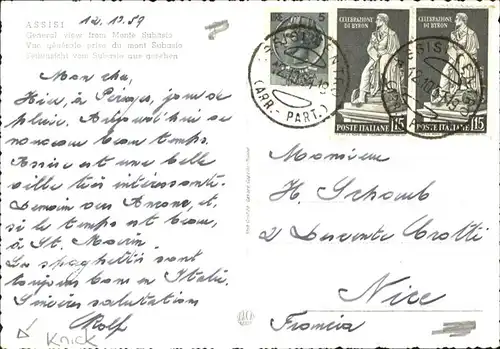 ASSISI 12.10.59
General view from Monte Subasio
Vue générale prise du mont Subasio
Fernsicht von Subasio aus gesehen
Mon cher,
Hier, à Pérouse, jour de
pluie. Aujourd'hui de
nouveau beau temps.
Assise est une belle
ville très intéressante.
Demain vers Ancone, et,
si le temps est beau,
à St. Marin.
Les spaghettis sont
toujours bons en Italie.
Sincères salutations
Rolf
Knick
CELEBRAZIONE
DI BYRON
POSTE ITALIANE L.15
CELEBRAZIONE
DI BYRON
POSTE ITALIANE L.15
(ARR.- PART.)
Monsieur
H. Schaub
2 Descente Crotti
Nice
Francia